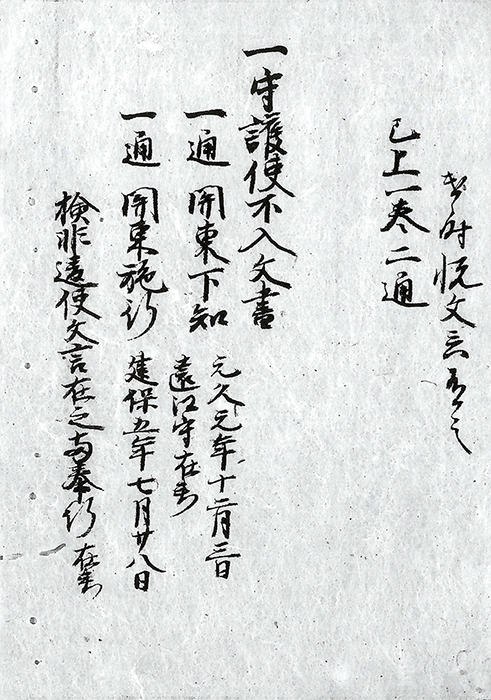 文
已上一巻二通
一守護使不入文書
一通 関東下知 元久元年十二月三日
遠江守在判
一通 関東施行 建保五年七月廿八日
検非違使文言在之両奉行在判